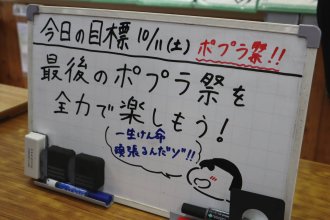 今日の目標 10/11(土) ポプラ祭!!
最後のポプラ祭を
全力で楽しもう!
一生けん命
頑張るんだ"ゾ"!!